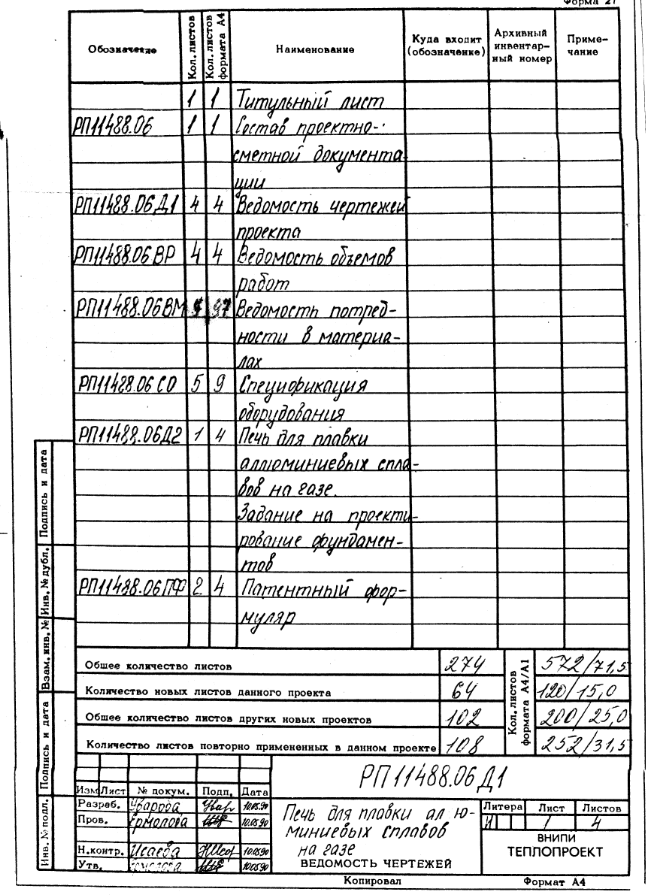 Форма 21
Обозначение Кол. листов Кол. листов формата А4 Наименование Куда входит (обозначение) Архивный инвентарный номер Примечание
1 1 Титульный лист
РП11488.06 1 1 Состав проектно-
сметной документа
ции
РП11488.06Д1 4 4 Ведомость чертежей
проекта
РП11488.06ВР 4 4 Ведомость объемов
работ
РП11488.06ВМ 97 Ведомость потреб-
ности в материа-
лах
РП11488.06СО 5 9 Спецификация
оборудования
РП11488.06Д2 1 4 Печь для плавки
аллюминиевых спла-
вов на газе.
Задание на проекти
рование фундамен-
тов
РП11488.06ПФ 2 4 Патентный фор-
муляр
Общее количество листов 274 572/71,5
Количество новых листов данного проекта 64 120/15,0
Общее количество листов других новых проектов 102 200/25,0
Количество листов повторно примененных в данном проекте 108 252/31,5
Кол. листов формата А4/А1
РП11488.06Д1
Изм Лист № докум. Подп. Дата
Разраб. Уварова 10.05.90
Пров. Ермолова 10.05.90
Н.контр. Исаева 10.05.90
Утв. 10.05.90
Печь для плавки ал ю-
миниевых сплавов
на газе
ВЕДОМОСТЬ ЧЕРТЕЖЕЙ
Литера Лист Листов
И 1 4
ВНИПИ
ТЕПЛОПРОЕКТ
Инв. № подл. Подпись и дата Взам. инв. № Инв. № дубл. Подпись и дата
Копировал Формат А4